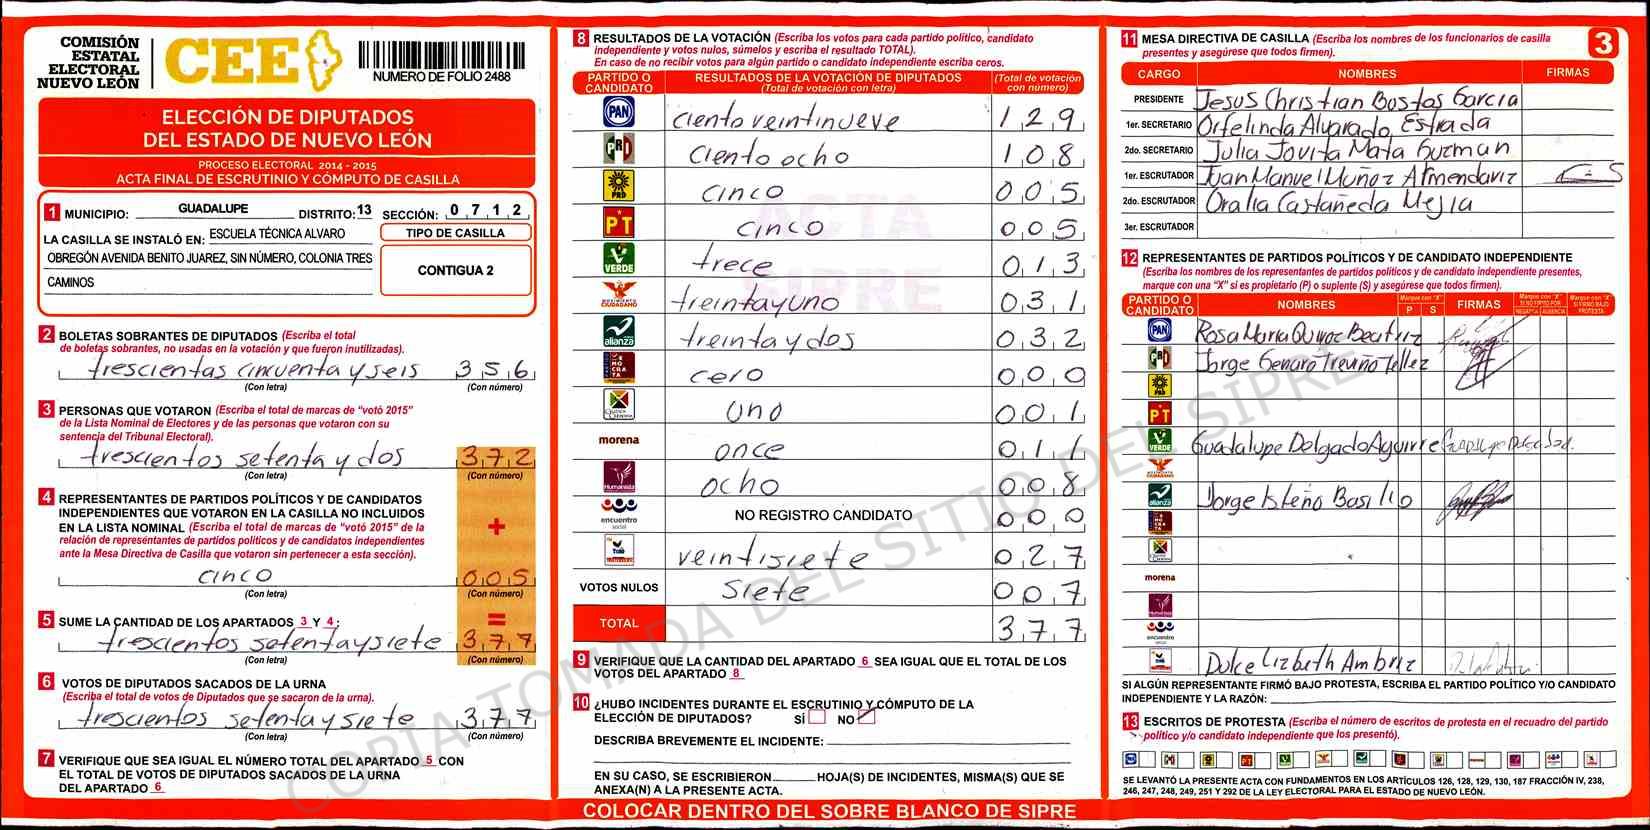 COMISIÓN
ESTATAL
ELECTORAL
NUEVO LEÓN
CEE
NUMERO DE FOLIO 2488
ELECCIÓN DE DIPUTADOS
DEL ESTADO DE NUEVO LEÓN
PROCESO ELECTORAL 2014 - 2015
ACTA FINAL DE ESCRUTINIO Y CÓMPUTO DE CASILLA
1 MUNICIPIO: GUADALUPE DISTRITO: 13 SECCIÓN: 0 7 1 2
LA CASILLA SE INSTALÓ EN: ESCUELA TÉCNICA ALVARO
OBREGÓN AVENIDA BENITO JUAREZ, SIN NÚMERO, COLONIA TRES
CAMINOS
TIPO DE CASILLA
CONTIGUA 2
2 BOLETAS SOBRANTES DE DIPUTADOS (Escriba el total
de boletas sobrantes, no usadas en la votación y que fueron inutilizadas).
trescientas cincuenta y seis 3 5 6
(Con letra) (Con número)
3 PERSONAS QUE VOTARON (Escriba el total de marcas de "votó 2015"
de la Lista Nominal de Electores y de las personas que votaron con su
sentencia del Tribunal Electoral).
trescientos setenta y dos 3 7 2
(Con letra) (Con número)
4 REPRESENTANTES DE PARTIDOS POLÍTICOS Y DE CANDIDATOS
INDEPENDIENTES QUE VOTARON EN LA CASILLA NO INCLUIDOS
EN LA LISTA NOMINAL (Escriba el total de marcas de "votó 2015" de la
relación de representantes de partidos políticos y de candidatos independientes
ante la Mesa Directiva de Casilla que votaron sin pertenecer a esta sección).
+
cinco 0 0 5
(Con letra) (Con número)
5 SUME LA CANTIDAD DE LOS APARTADOS 3 Y 4: =
trescientos setenta y siete 3 7 7
(Con letra) (Con número)
6 VOTOS DE DIPUTADOS SACADOS DE LA URNA
(Escriba el total de votos de Diputados que se sacaron de la urna).
trescientos setenta y siete 3 7 7
(Con letra) (Con número)
7 VERIFIQUE QUE SEA IGUAL EL NÚMERO TOTAL DEL APARTADO 5 CON
EL TOTAL DE VOTOS DE DIPUTADOS SACADOS DE LA URNA
DEL APARTADO 6
8 RESULTADOS DE LA VOTACIÓN (Escriba los votos para cada partido político, candidato
independiente y votos nulos, súmelos y escriba el resultado TOTAL).
En caso de no recibir votos para algún partido o candidato independiente escriba ceros.
PARTIDO O CANDIDATO RESULTADOS DE LA VOTACIÓN DE DIPUTADOS (Total de votación con letra) (Total de votación con número)
PAN ciento veintinueve 1 2 9
PRD ciento ocho 1 0 8
PRD cinco 0 0 5
PT cinco 0 0 5
VERDE trece 0 1 3
MOVIMIENTO CIUDADANO treinta y uno 0 3 1
alianza treinta y dos 0 3 2
cero 0 0 0
uno 0 0 1
morena once 0 1 1
Humanista ocho 0 0 8
encuentro social NO REGISTRO CANDIDATO 0 0 0
veintisiete 0 2 7
VOTOS NULOS siete 0 0 7
TOTAL 3 7 7
9 VERIFIQUE QUE LA CANTIDAD DEL APARTADO 6 SEA IGUAL QUE EL TOTAL DE LOS
VOTOS DEL APARTADO 8
10 ¿HUBO INCIDENTES DURANTE EL ESCRUTINIO Y CÓMPUTO DE LA
ELECCIÓN DE DIPUTADOS? SÍ NO
DESCRIBA BREVEMENTE EL INCIDENTE:
EN SU CASO, SE ESCRIBIERON HOJA(S) DE INCIDENTES, MISMA(S) QUE SE
ANEXA(N) A LA PRESENTE ACTA.
COLOCAR DENTRO DEL SOBRE BLANCO DE SIPRE
11 MESA DIRECTIVA DE CASILLA (Escriba los nombres de los funcionarios de casilla
presentes y asegúrese que todos firmen).
3
CARGO NOMBRES FIRMAS
PRESIDENTE Jesus Christian Bustos Garcia
1er. SECRETARIO Orfelinda Alvarado Estrada
2do. SECRETARIO Julia Jovita Mata Guzman
1er. ESCRUTADOR Juan Manuel Muñoz Armendariz
2do. ESCRUTADOR Oralia Castañeda Mejia
3er. ESCRUTADOR
12 REPRESENTANTES DE PARTIDOS POLÍTICOS Y DE CANDIDATO INDEPENDIENTE
(Escriba los nombres de los representantes de partidos políticos y de candidato independiente presentes,
marque con una "X" si es propietario (P) o suplente (S) y asegúrese que todos firmen).
PARTIDO O CANDIDATO NOMBRES Marque con "X" P S FIRMAS Marque con "X" SI NO FIRMÓ POR NEGATIVA AUSENCIA Marque con "X" SI FIRMÓ BAJO PROTESTA
PAN Rosa Maria Quiroz Beatriz
Jorge Genaro Treviño Tellez
PRD
PT
VERDE Guadalupe Delgado Aguirre Guadalupe Delgado
alianza Jorge Isleño Basilio
morena
encuentro social
Dulce Lizbeth Ambriz
SI ALGÚN REPRESENTANTE FIRMÓ BAJO PROTESTA, ESCRIBA EL PARTIDO POLÍTICO Y/O CANDIDATO
INDEPENDIENTE Y LA RAZÓN:
13 ESCRITOS DE PROTESTA (Escriba el número de escritos de protesta en el recuadro del partido
político y/o candidato independiente que los presentó).
SE LEVANTÓ LA PRESENTE ACTA CON FUNDAMENTOS EN LOS ARTÍCULOS 126, 128, 129, 130, 187 FRACCIÓN IV, 238,
246, 247, 248, 249, 251 Y 292 DE LA LEY ELECTORAL PARA EL ESTADO DE NUEVO LEÓN.
ACTA
SIPRE
COPIA TOMADA DEL SITIO DEL SIPRE